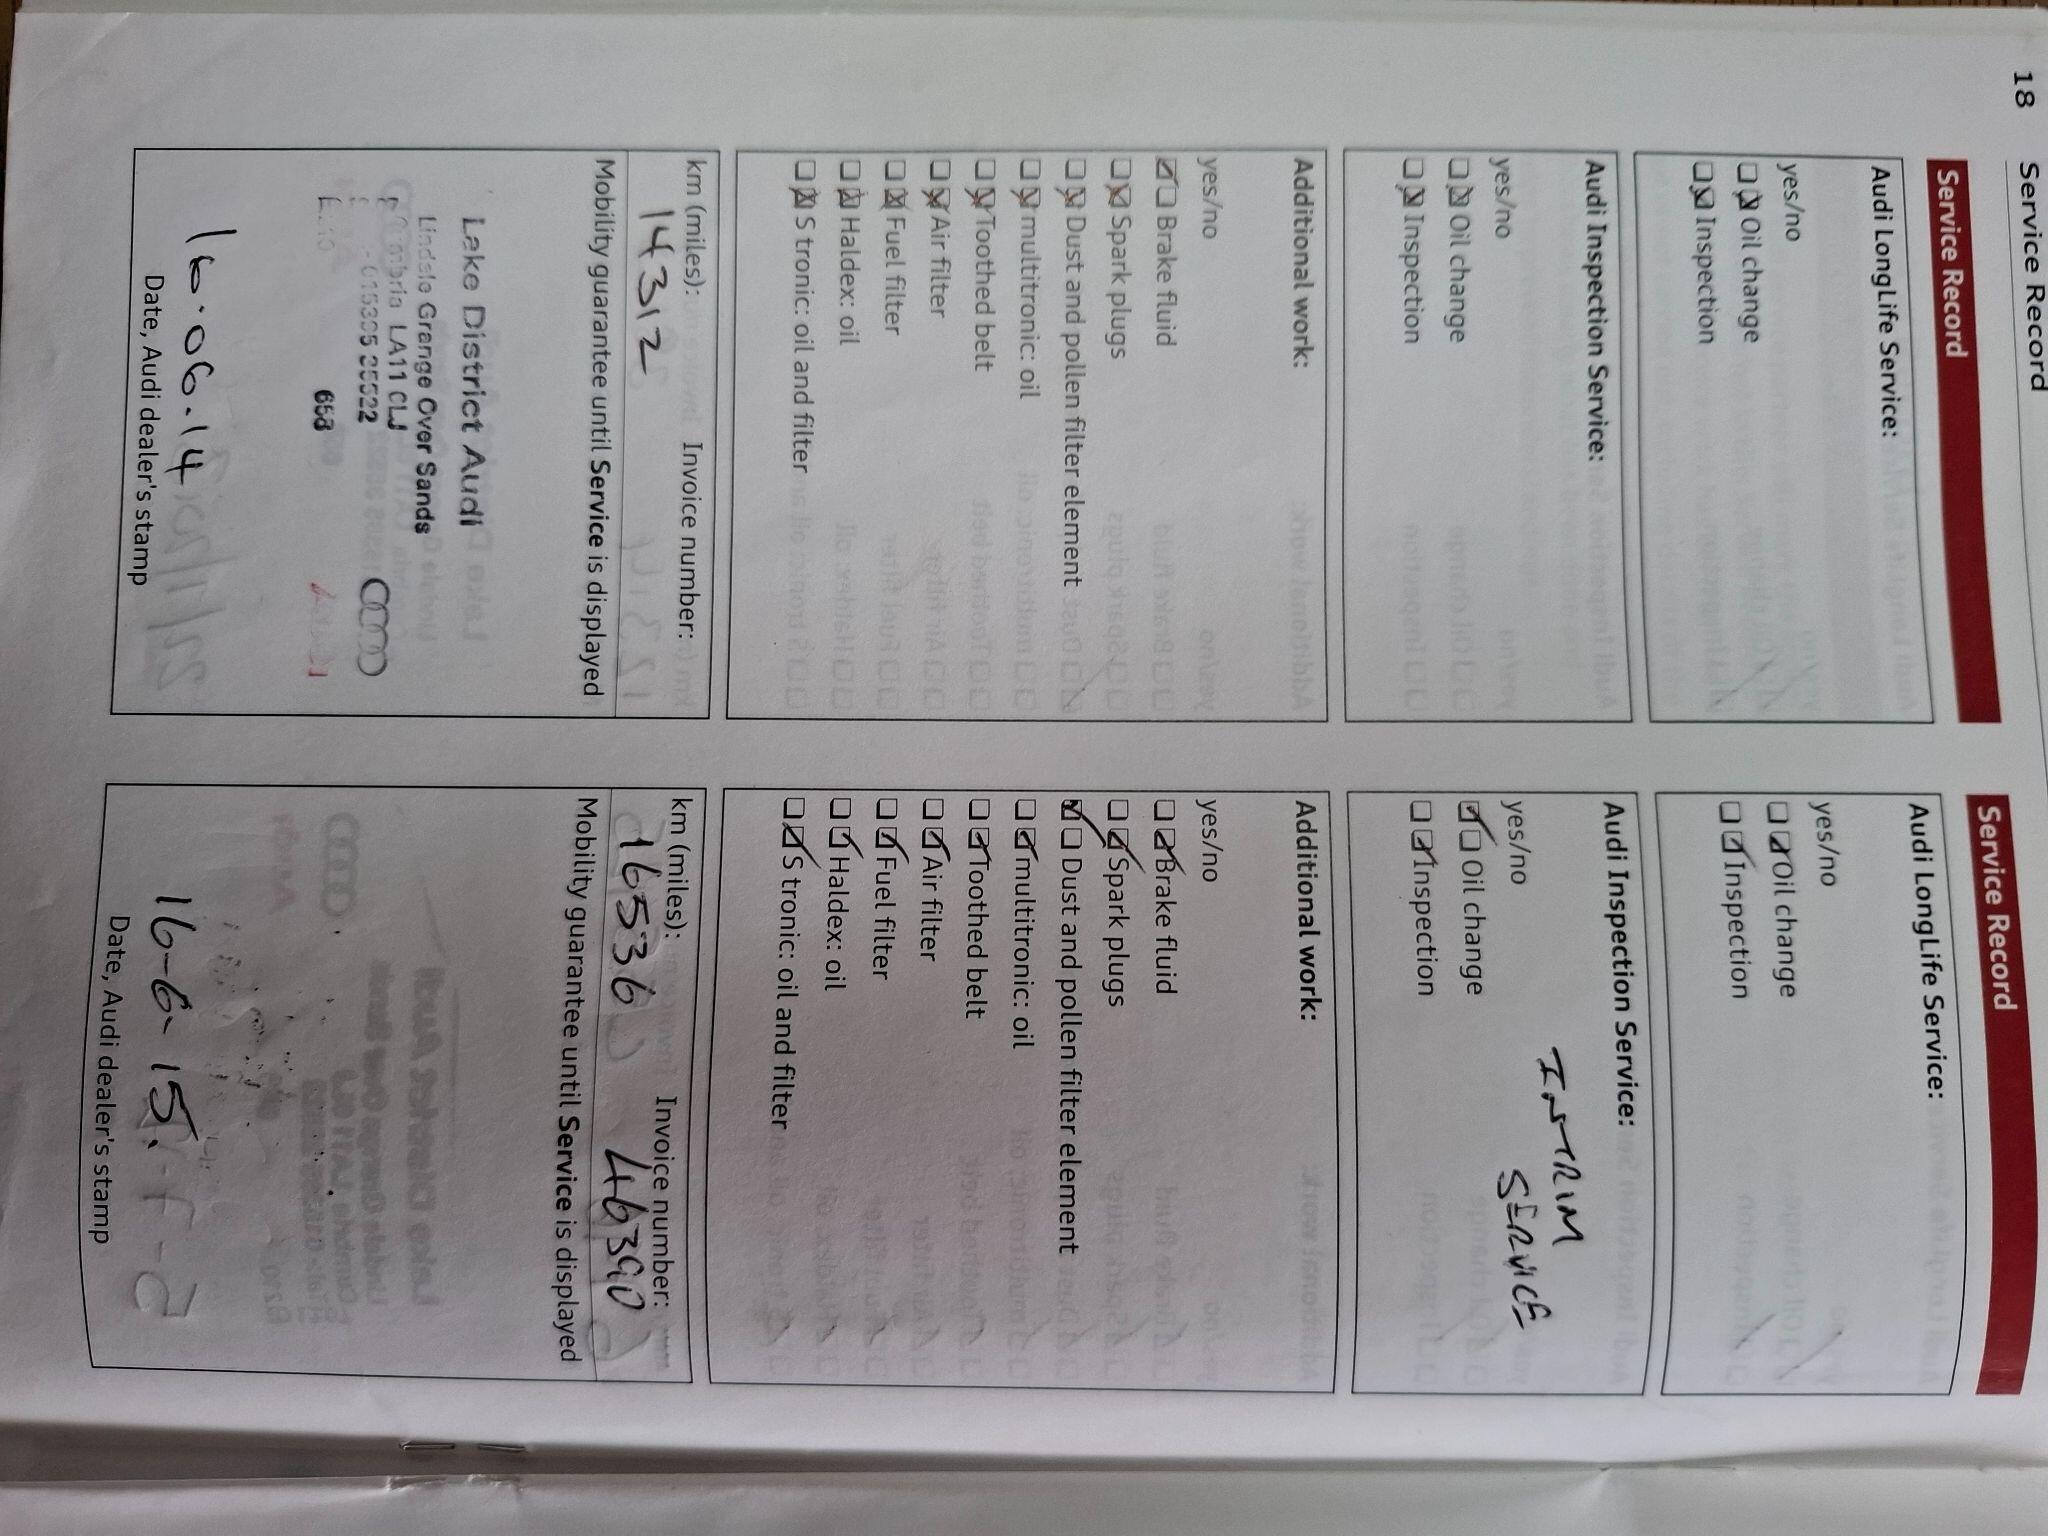 18 Service Record
Service Record
Audi LongLife Service:
yes/no
Oil change
Inspection
Audi Inspection Service:
yes/no
Oil change
Inspection
Additional work:
yes/no
Brake fluid
Spark plugs
Dust and pollen filter element
multitronic: oil
Toothed belt
Air filter
Fuel filter
Haldex: oil
S tronic: oil and filter
km (miles): Invoice number:
14312
Mobility guarantee until Service is displayed
Lake District Audi
Lindale Grange Over Sands
Cumbria LA11
16.06.14
Date, Audi dealer's stamp
Service Record
Audi LongLife Service:
yes/no
Oil change
Inspection
Audi Inspection Service:
INTRIM
SERVICE
yes/no
Oil change
Inspection
Additional work:
yes/no
Brake fluid
Spark plugs
Dust and pollen filter element
multitronic: oil
Toothed belt
Air filter
Fuel filter
Haldex: oil
S tronic: oil and filter
km (miles): Invoice number:
16536 46390
Mobility guarantee until Service is displayed
16-6-15.
Date, Audi dealer's stamp